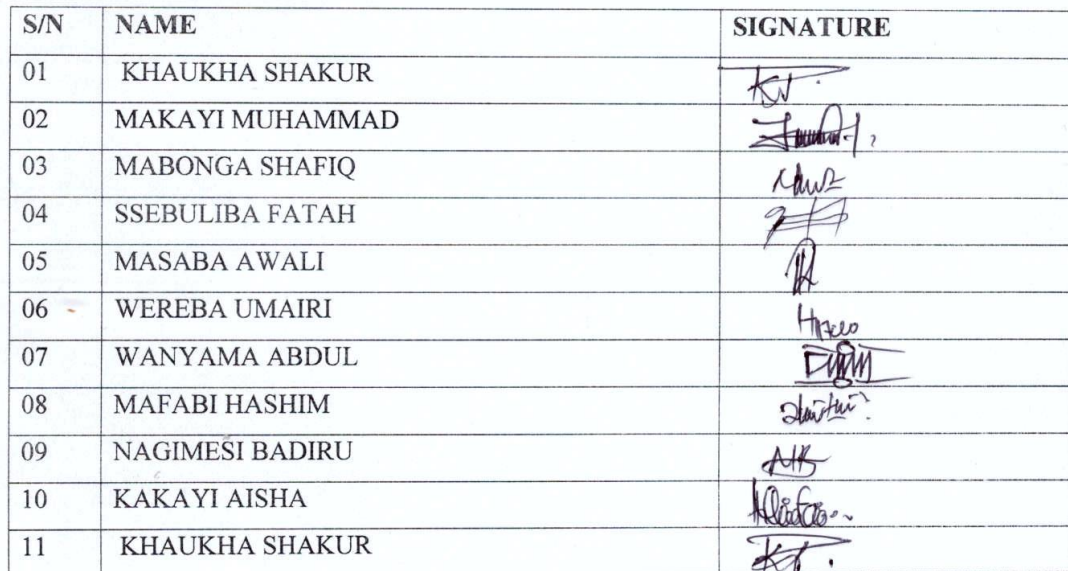 S/N NAME SIGNATURE
01 KHAUKHA SHAKUR
02 MAKAYI MUHAMMAD
03 MABONGA SHAFIQ
04 SSEBULIBA FATAH
05 MASABA AWALI
06 WEREBA UMAIRI
07 WANYAMA ABDUL
08 MAFABI HASHIM
09 NAGIMESI BADIRU
10 KAKAYI AISHA
11 KHAUKHA SHAKUR